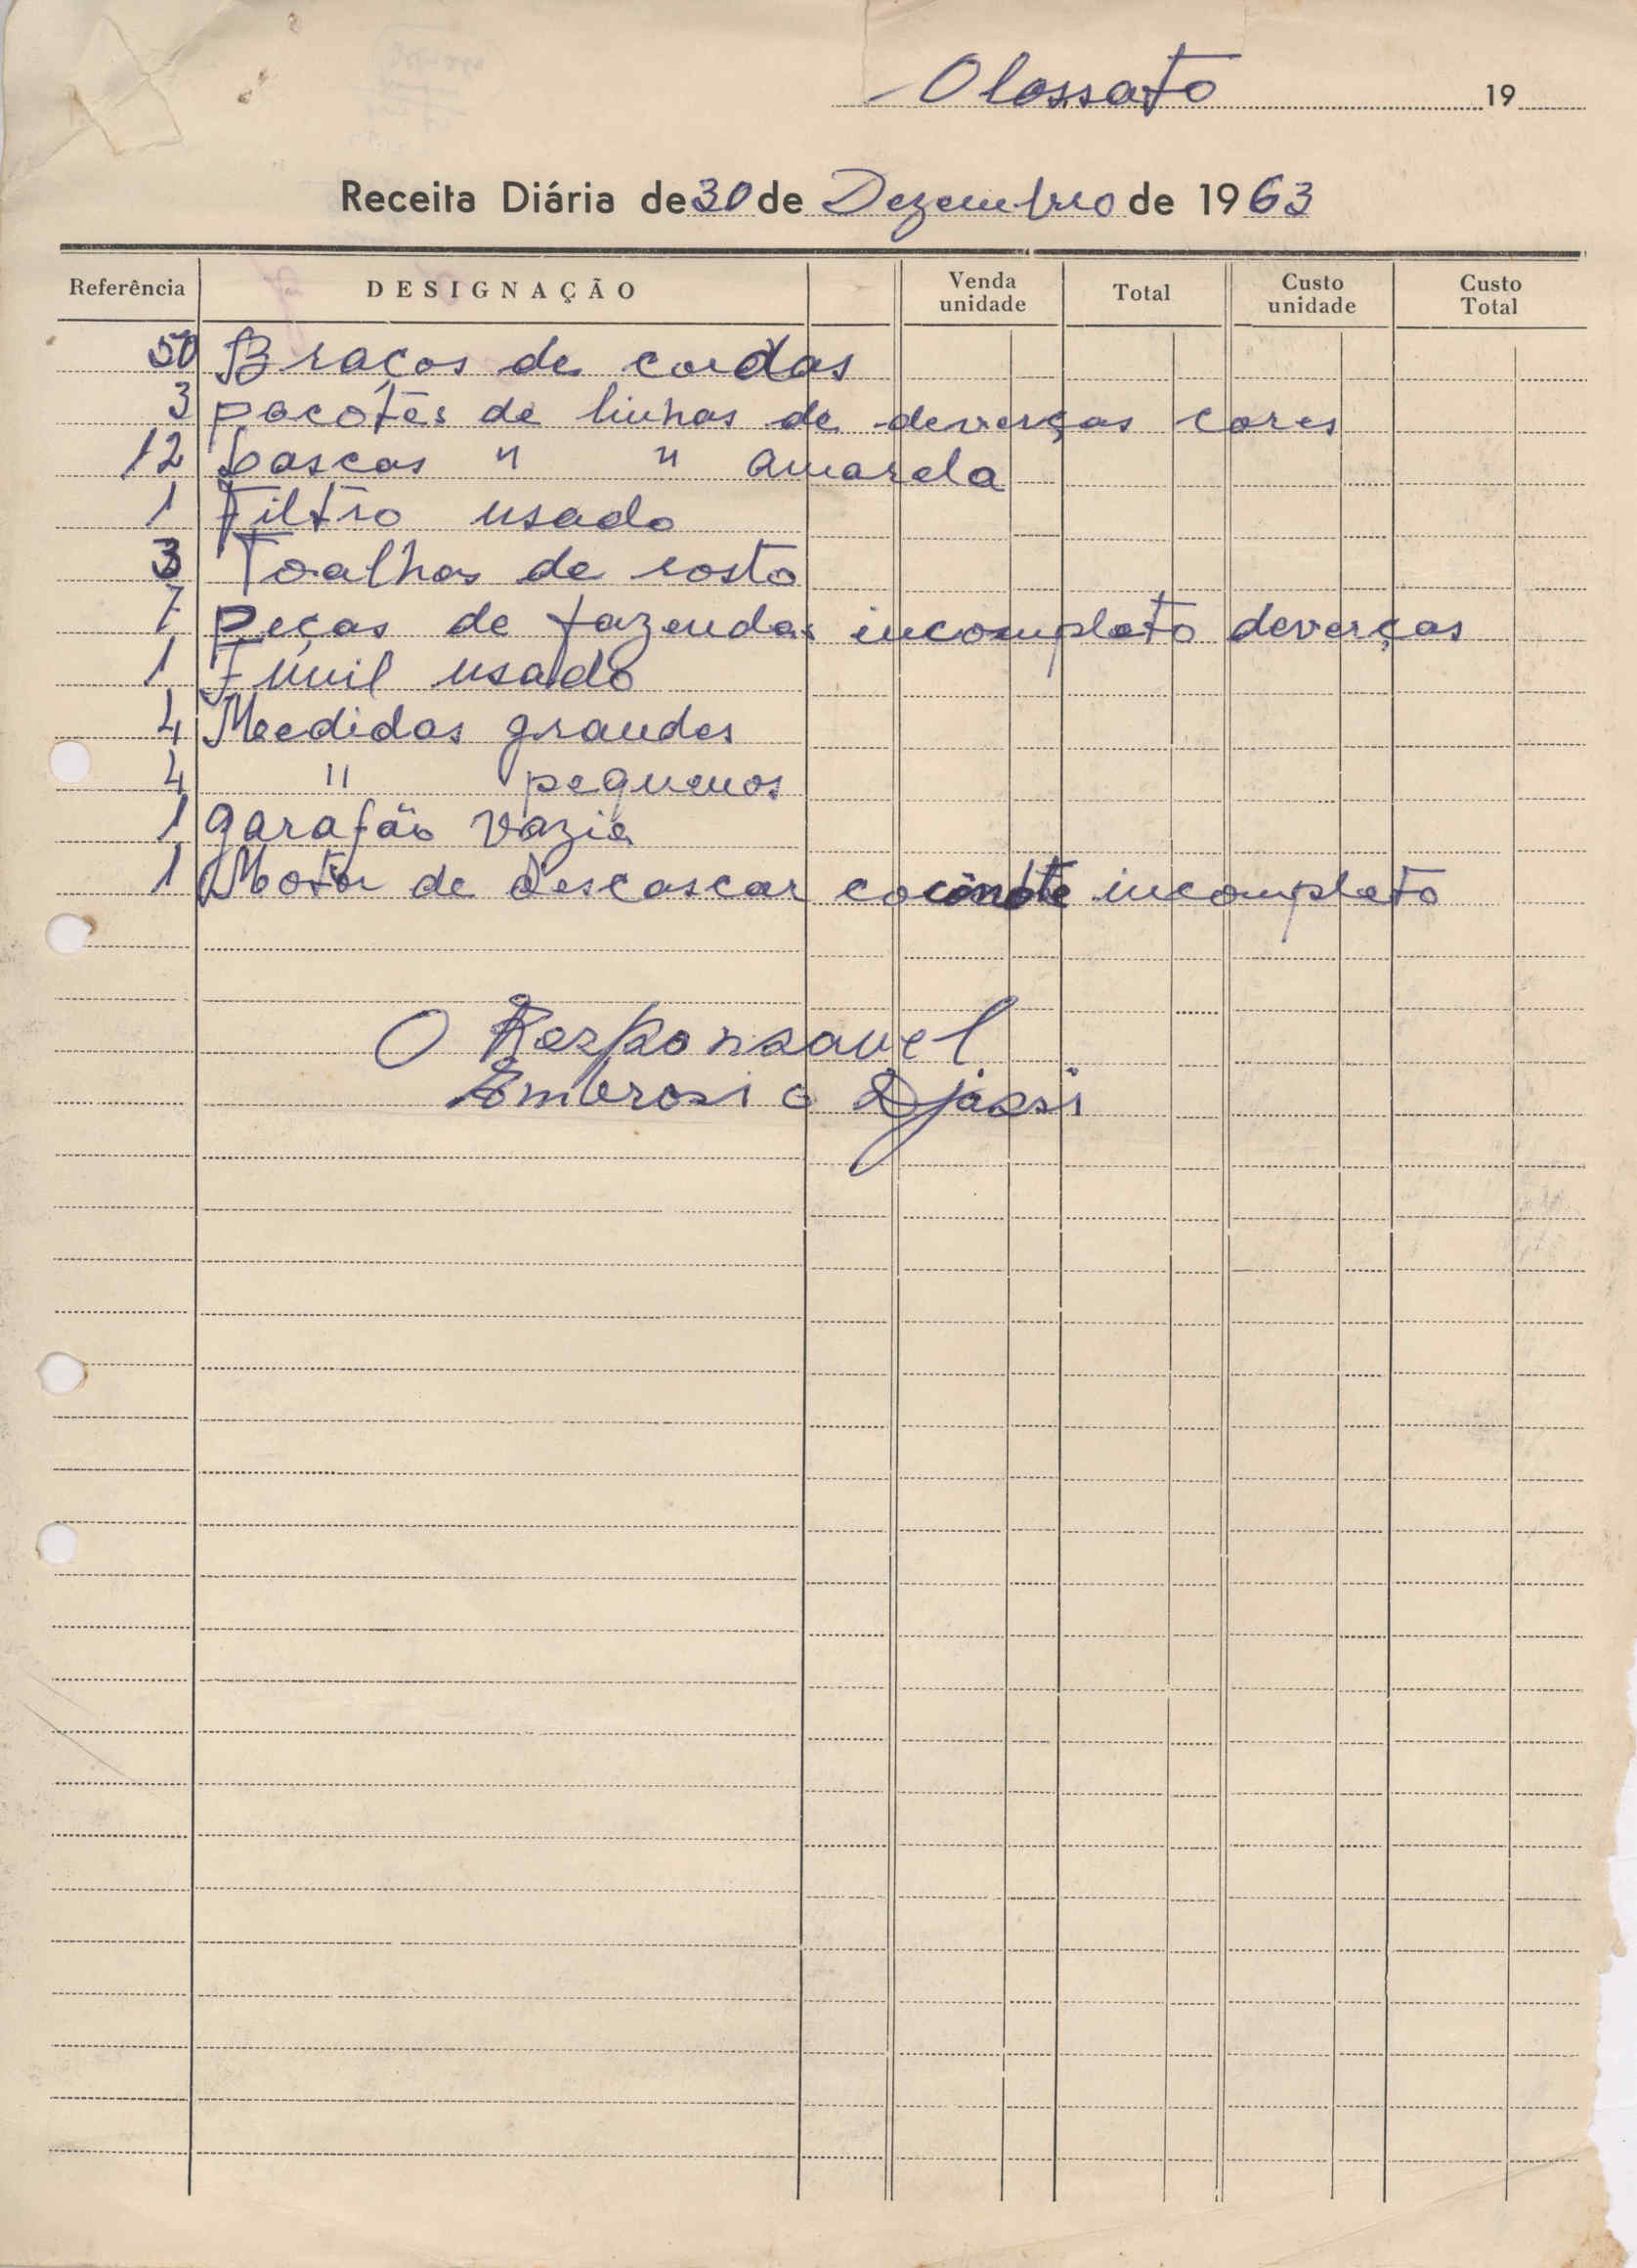 Olossato 19
Receita Diária de 30 de Dezembro de 1963
Referência DESIGNAÇÃO Venda unidade Total Custo unidade Custo Total
50 Braços de cordas
3 pacotes de linhas de deverças cores
12 Cascas " " amarela
1 Filtro usado
3 Toalhas de rosto
7 Peças de fazendas incompleto deverças
1 Funil usado
4 Meedidas grandes
4 " pequenos
1 garafão vazio
1 Motor de descascar incompleto
O Responsavel
Ambrosio Djassi